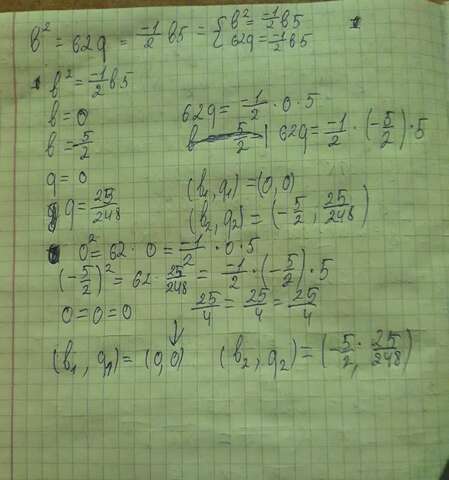 b² = 62q = -1/2 b5 = { b² = -1/2 b5
62q = -1/2 b5
b² = -1/2 b5
b = 0
62q = -1/2 · 0 · 5
b = 5/2
62q = -1/2 · (-5/2) · 5
q = 0
(b₁, q₁) = (0, 0)
q = 25/248
(b₂, q₂) = (-5/2, 25/248)
0² = 62 · 0 = -1/2 · 0 · 5
(-5/2)² = 62 · 25/248 = -1/2 · (-5/2) · 5
0 = 0 = 0
25/4 = 25/4 = 25/4
(b₁, q₁) = (0, 0)
(b₂, q₂) = (-5/2, 25/248)